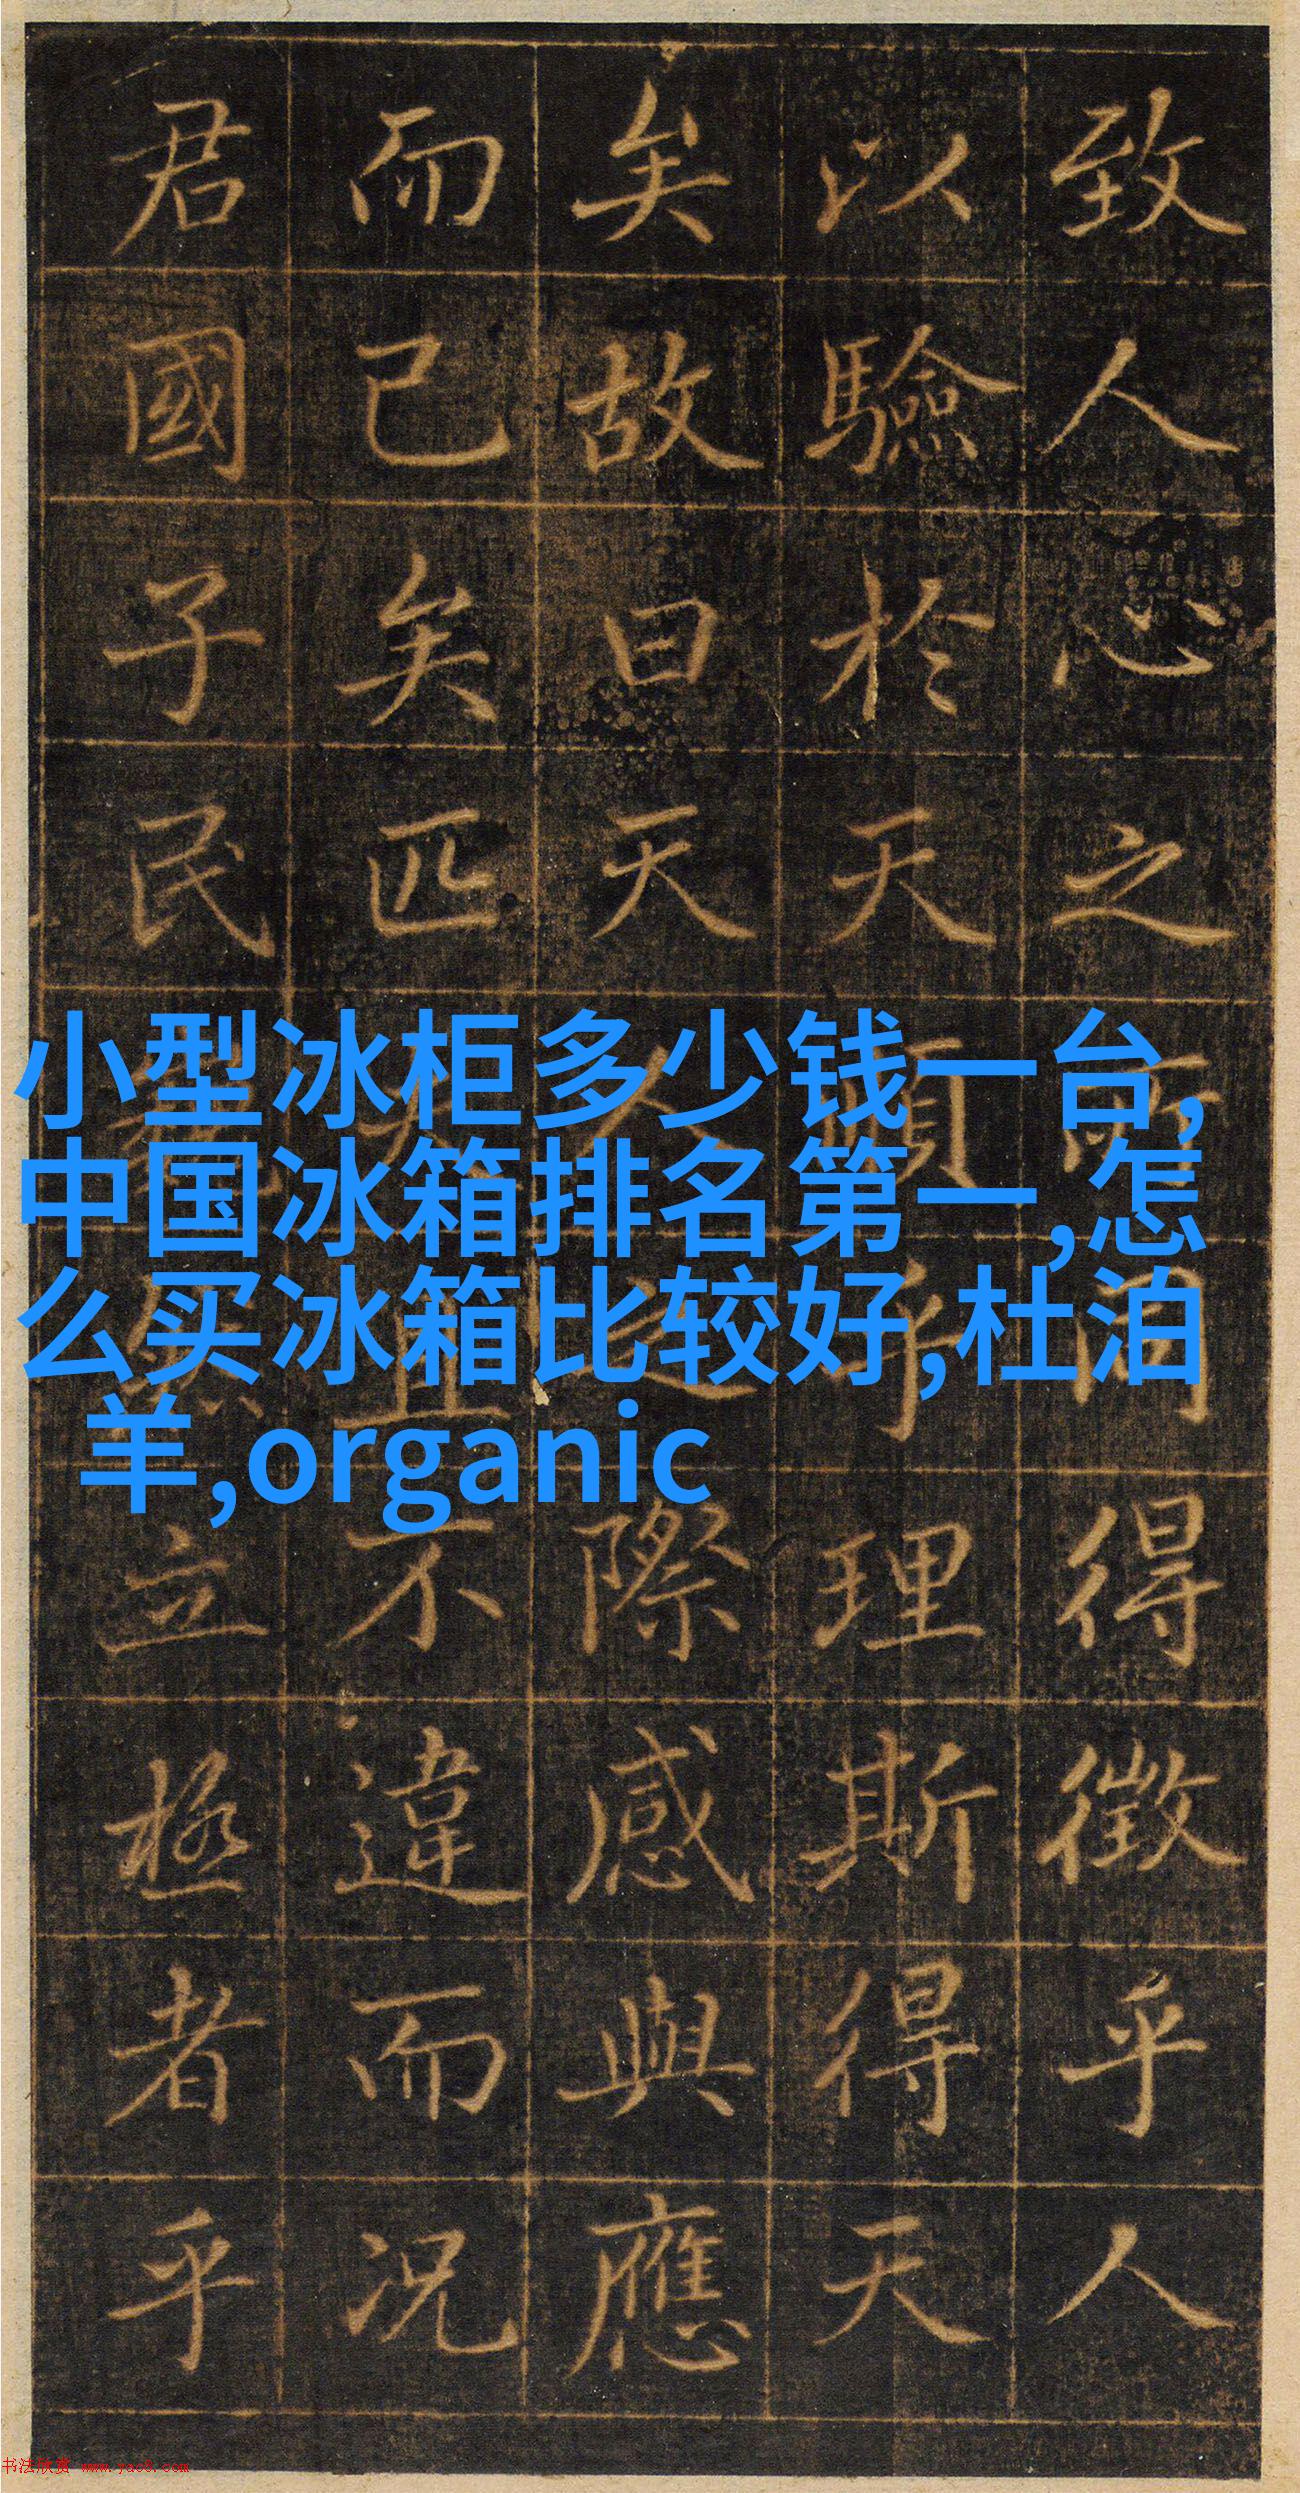 致人心之所同得徵乎人
以驗於天順乎理斯得天
矣故曰天人之際感與應
而已矣匹夫且不違而況
君國子民立極者乎
小型冰柜多少钱一台,
中国冰箱排名第一,怎
么买冰箱比较好,杜泊
羊,organic
书法欣赏 www.yac8.com